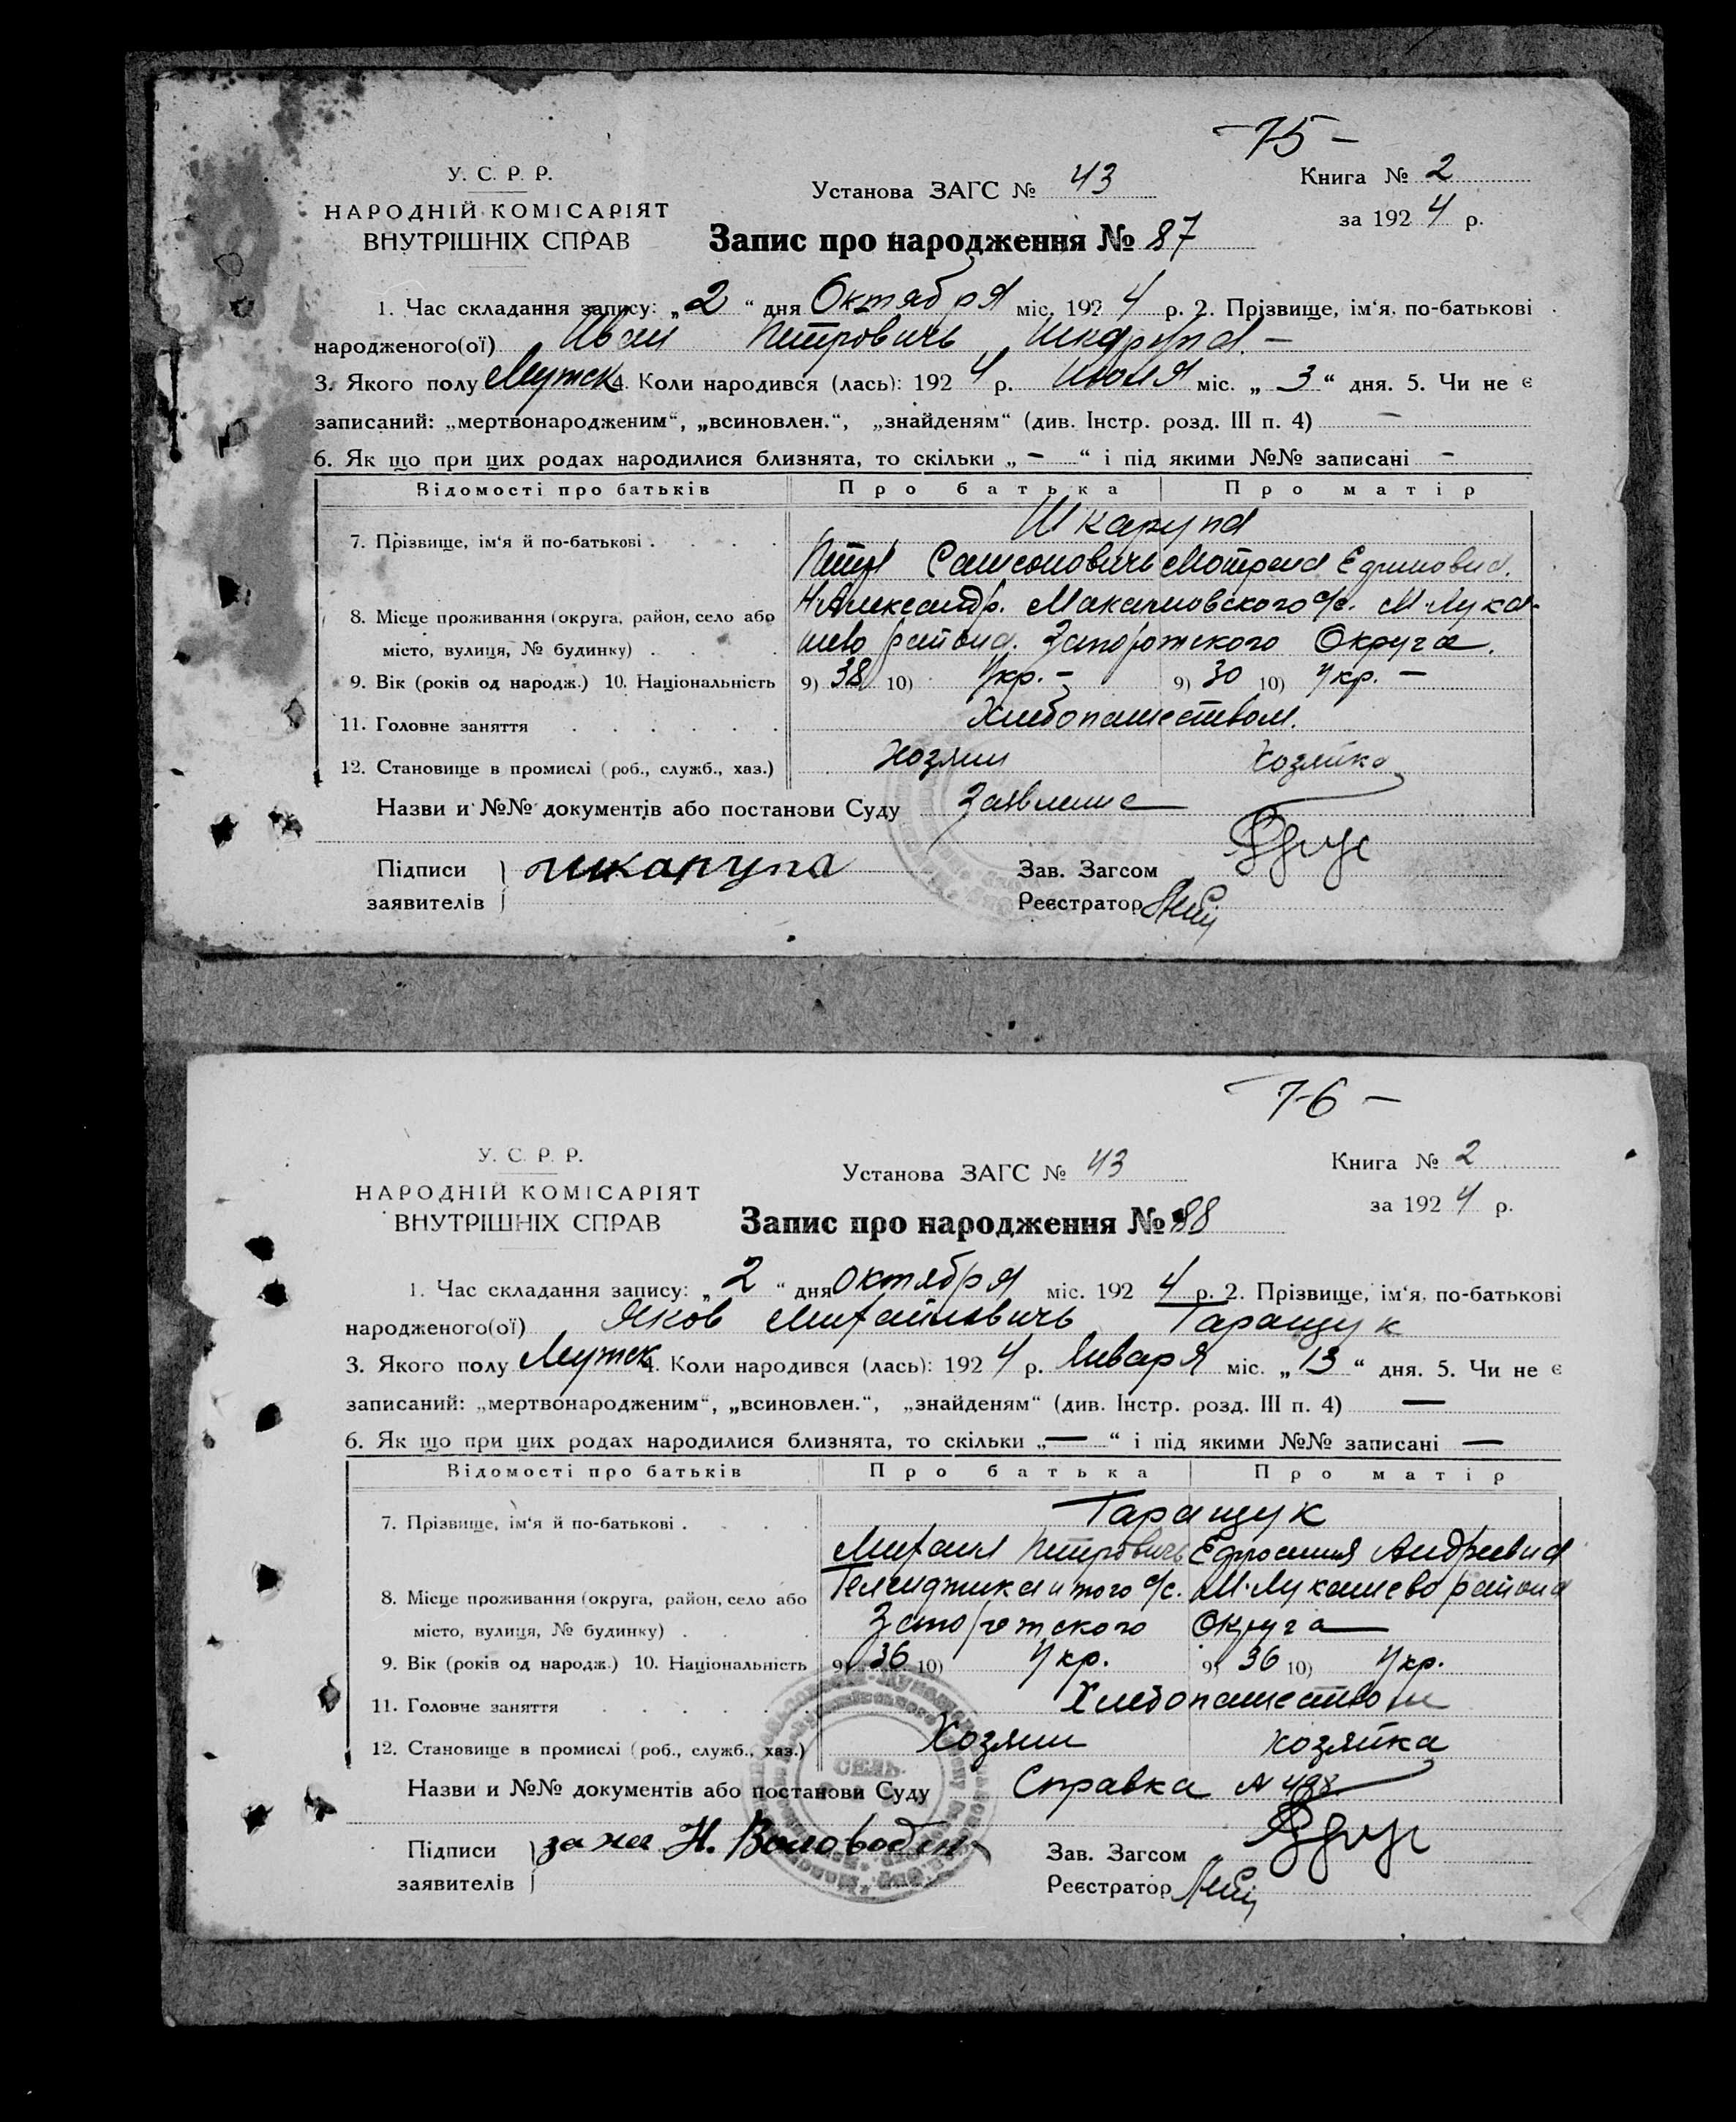 -75-
У. С. Р. Р.
НАРОДНІЙ КОМІСАРІЯТ
ВНУТРІШНІХ СПРАВ
Установа ЗАГС № 43
Книга № 2
за 1924 р.
Запис про народження № 87
1. Час складання запису: „2“ дня Октября міс. 1924 р. 2. Прізвище, ім‘я, по-батькові
народженого(ої) Иван Петровичь Шкарупа. —
3. Якого полу Мужск. 4. Коли народився (лась): 1924 р. Июля міс. „3“ дня. 5. Чи не є
записаний: „мертвонародженим“, „всиновлен.“, „знайденям“ (див. Інстр. розд. III п. 4) —
6. Як що при цих родах народилися близнята, то скільки „—“ і під якими №№ записані —
Відомості про батьків Про батька Про матір
Шкарупа
7. Прізвище, ім‘я й по-батькові . . . .
Петр Самсоновичь Мотрена Ефимовна.
8. Місце проживання (округа, район, село або Н-Александр. Макашовского с/с. М-Лука-
місто, вулиця, № будинку) . . . шево района. Запорожского Округа.
9. Вік (років од народж.) 10. Національність 9) 38 10) Укр. — 9) 30 10) Укр. —
11. Головне заняття . . . . . . Хлебопашеством.
12. Становище в промислі (роб., служб., хаз.) Хозяин Хозяйка
Назви и №№ документів або постанови Суду Заявление
Підписи шкарупа Зав. Загсом
заявителів Реєстратор
-76-
У. С. Р. Р.
НАРОДНІЙ КОМІСАРІЯТ
ВНУТРІШНІХ СПРАВ
Установа ЗАГС № 43
Книга № 2
за 1924 р.
Запис про народження № 88
1. Час складання запису: „2“ дня Октября міс. 1924 р. 2. Прізвище, ім‘я, по-батькові
народженого(ої) Яков Михайловичь Таращук
3. Якого полу Мужск 4. Коли народився (лась): 1924 р. Января міс. „13“ дня. 5. Чи не є
записаний: „мертвонародженим“, „всиновлен.“, „знайденям“ (див. Інстр. розд. III п. 4) —
6. Як що при цих родах народилися близнята, то скільки „—“ і під якими №№ записані —
Відомості про батьків Про батька Про матір
Таращук
7. Прізвище, ім‘я й по-батькові . . . .
Михаил Петровичь Ефросиния Андреевна
8. Місце проживання (округа, район, село або и того с/с. М-Лукашево района
місто, вулиця, № будинку) . . . Запорожского Округа
9. Вік (років од народж.) 10. Національність 9) 36 10) Укр. 9) 36 10) Укр.
11. Головне заняття . . . . . . Хлебопашеством
12. Становище в промислі (роб., служб., хаз.) Хозяин хозяйка
СЕЛЬ.
Назви и №№ документів або постанови Суду Справка № 498
Підписи за не Н. Зав. Загсом
заявителів Реєстратор